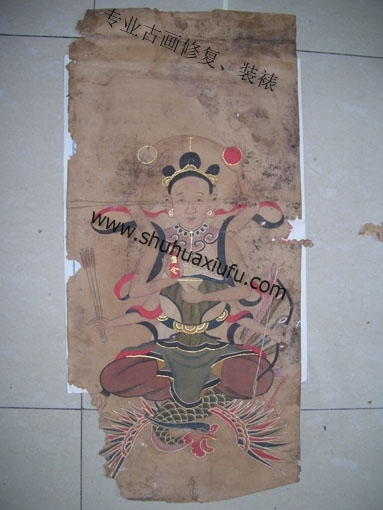 专业古画修复、装裱
www.shuhuaxiufu.com